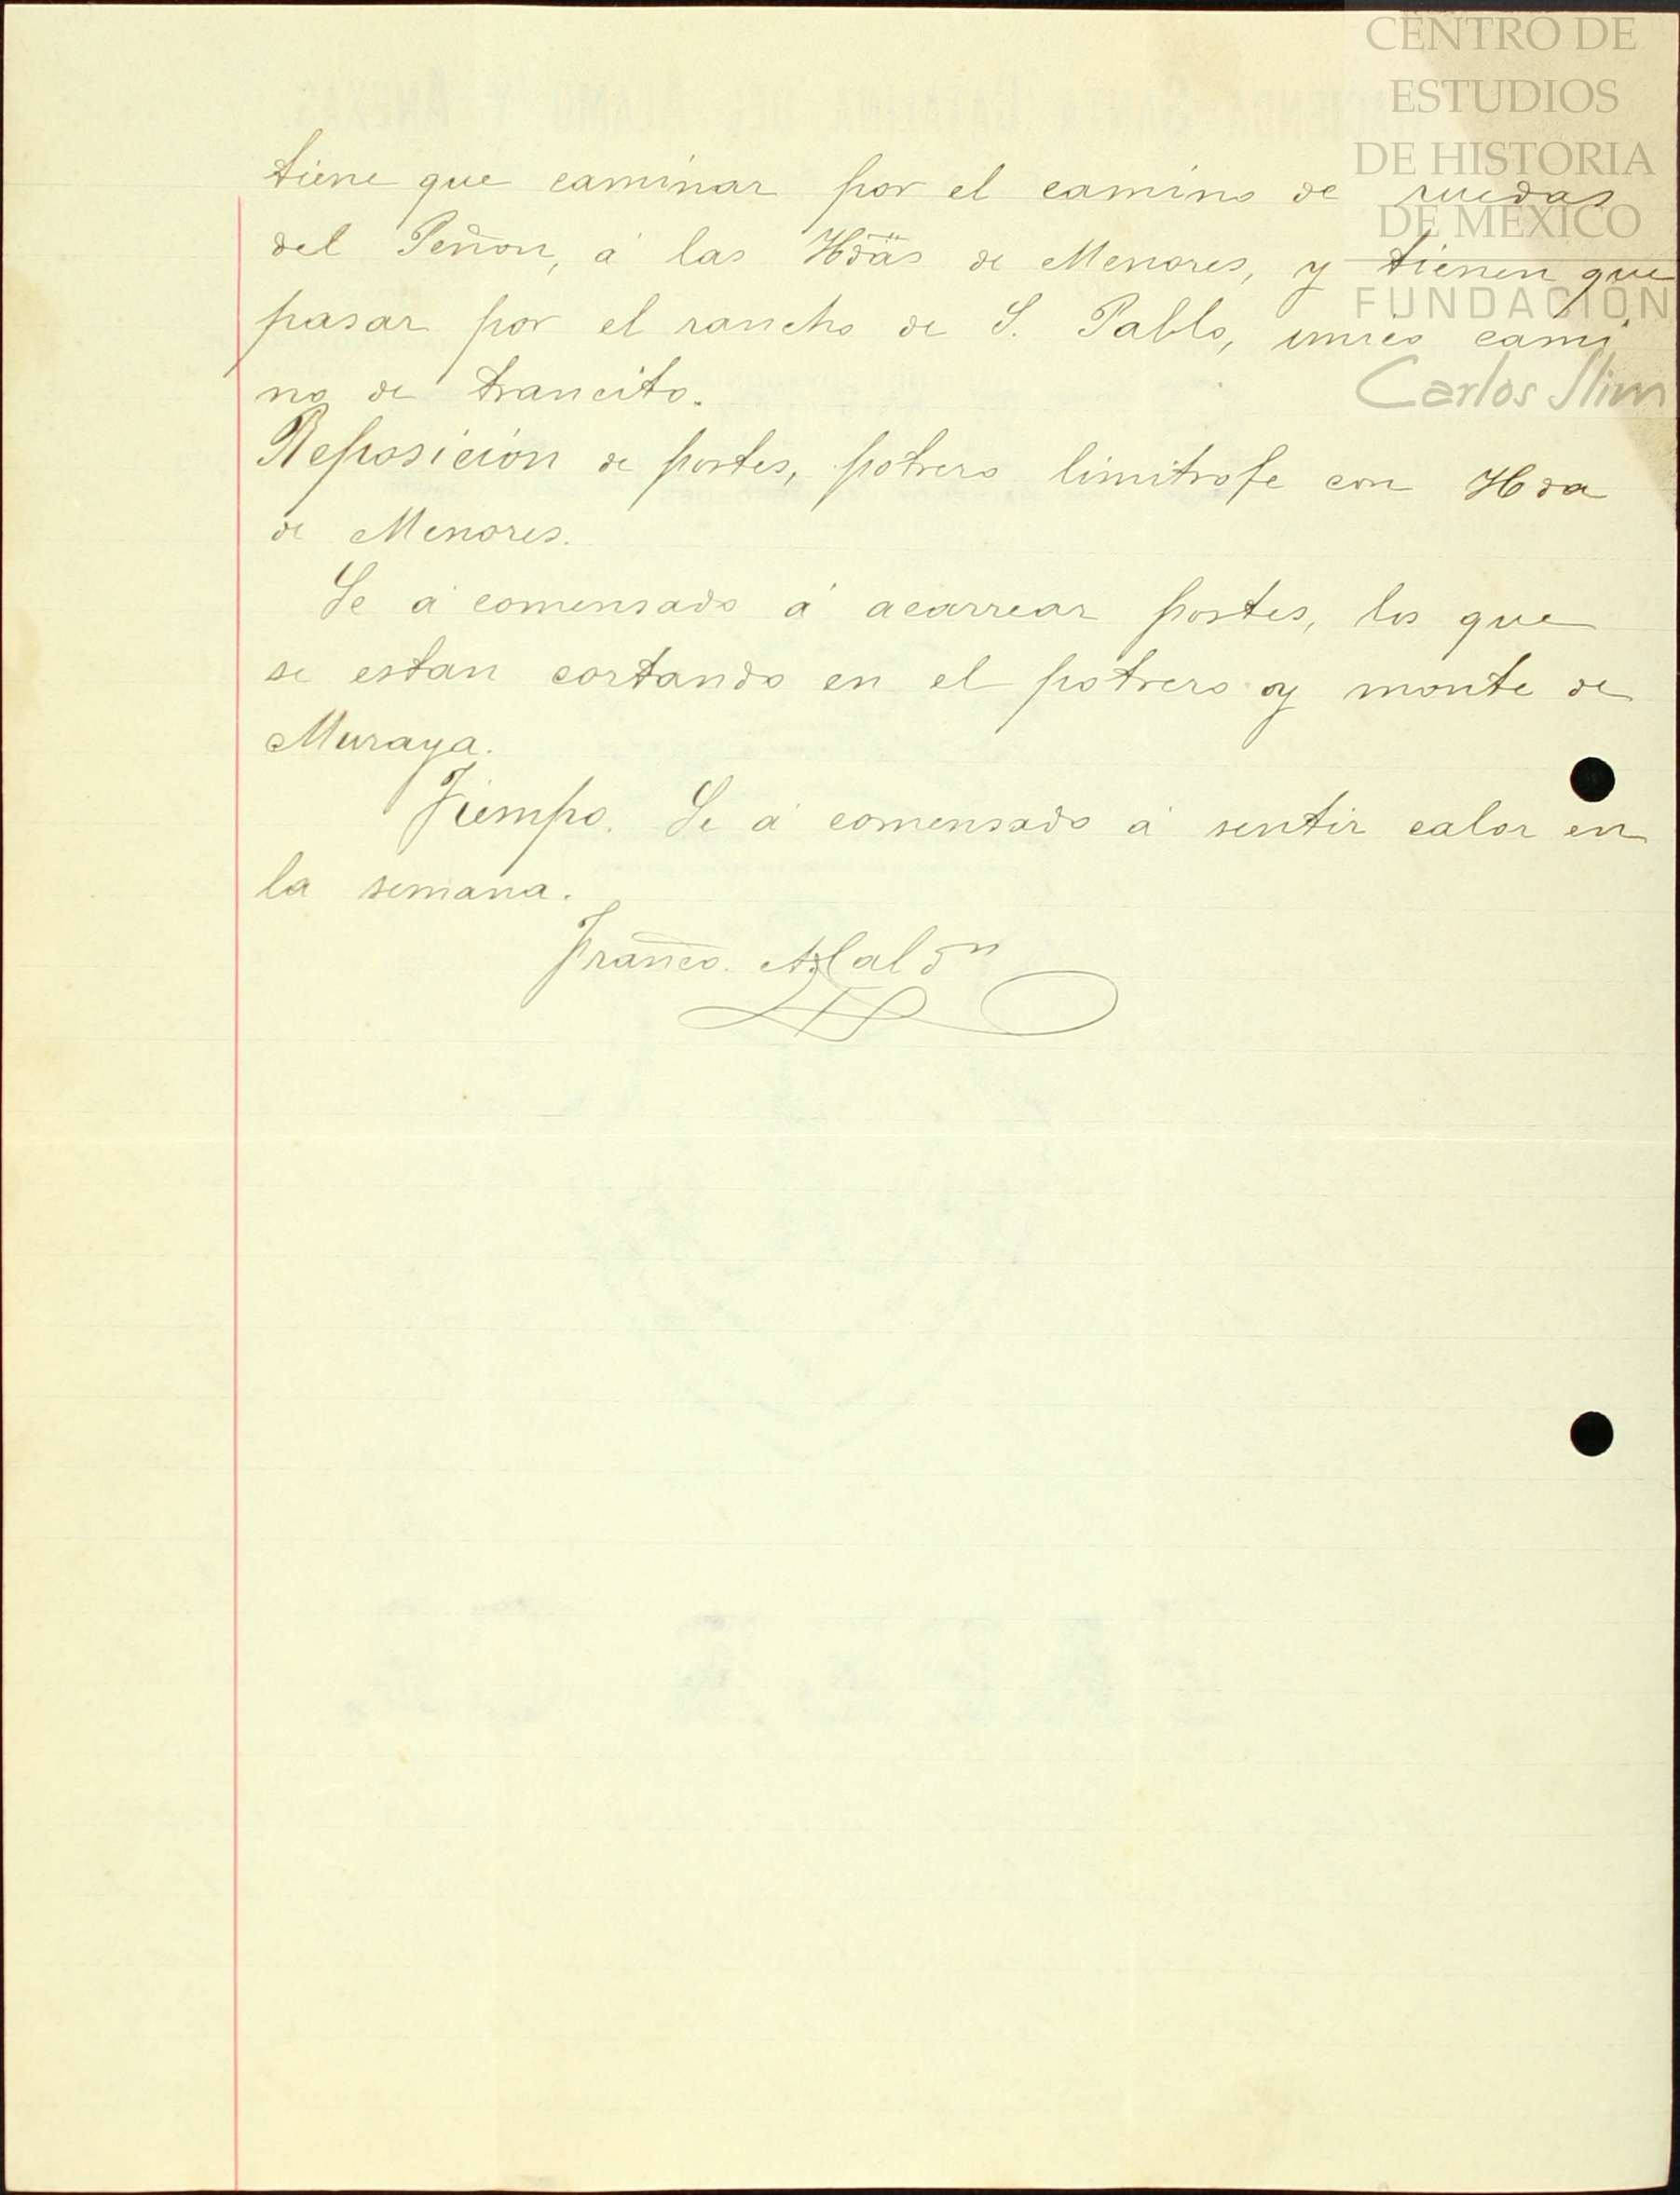 CENTRO DE
ESTUDIOS
DE HISTORIA
DE MÉXICO
FUNDACIÓN
Carlos Slim
tiene que caminar por el camino de ruedas
del Peñon, á las Hdas de Menores, y tienen que
pasar por el rancho de S. Pablo, unico cami
no de trancito.
Reposición de postes, potrero limitrofe con Hda
de Menores.
Se á comensado á acarrear postes, los que
se estan cortando en el potrero y monte de
Muraya.
Tiempo. Se á comensado á sentir calor en
la semana.
Franco.